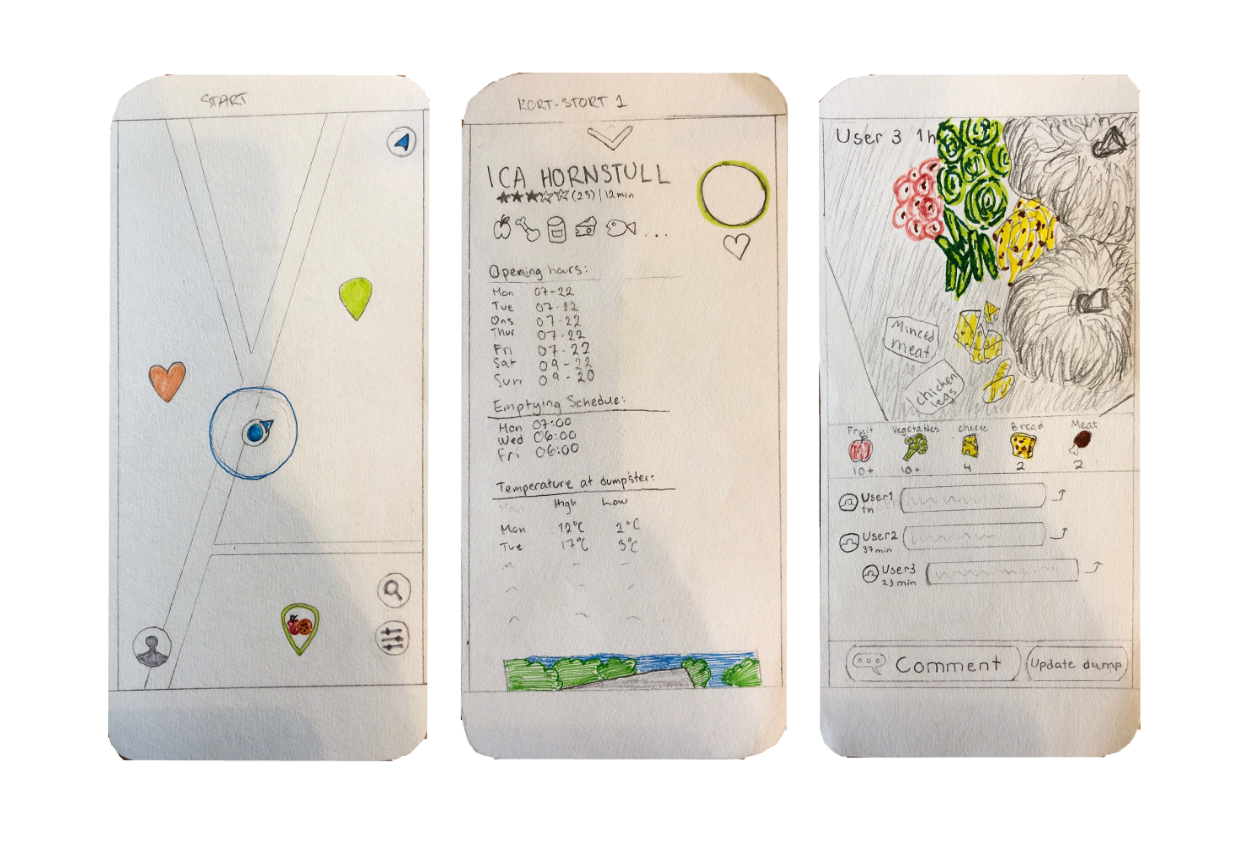 START
KORT-STORT 1
ICA HORNSTULL
★★★☆☆ (25) | 12min
...
Opening hours:
Mon 07-22
Tue 07-22
Ons 07-22
Thur 07-22
Fri 07-22
Sat 09-22
Sun 09-20
Emptying Schedue:
Mon 07:00
Wed 06:00
Fri 06:00
Temperature at dumpster:
High Low
Mon 12°C 2°C
Tue 17°C 3°C
User 3 1h
Minced
meat
chicken
legs
Fruit Vegetables cheese Bread Meat
10+ 10+ 4 2 2
User1
1h
User2
37min
User3
23 min
Comment
Update dump